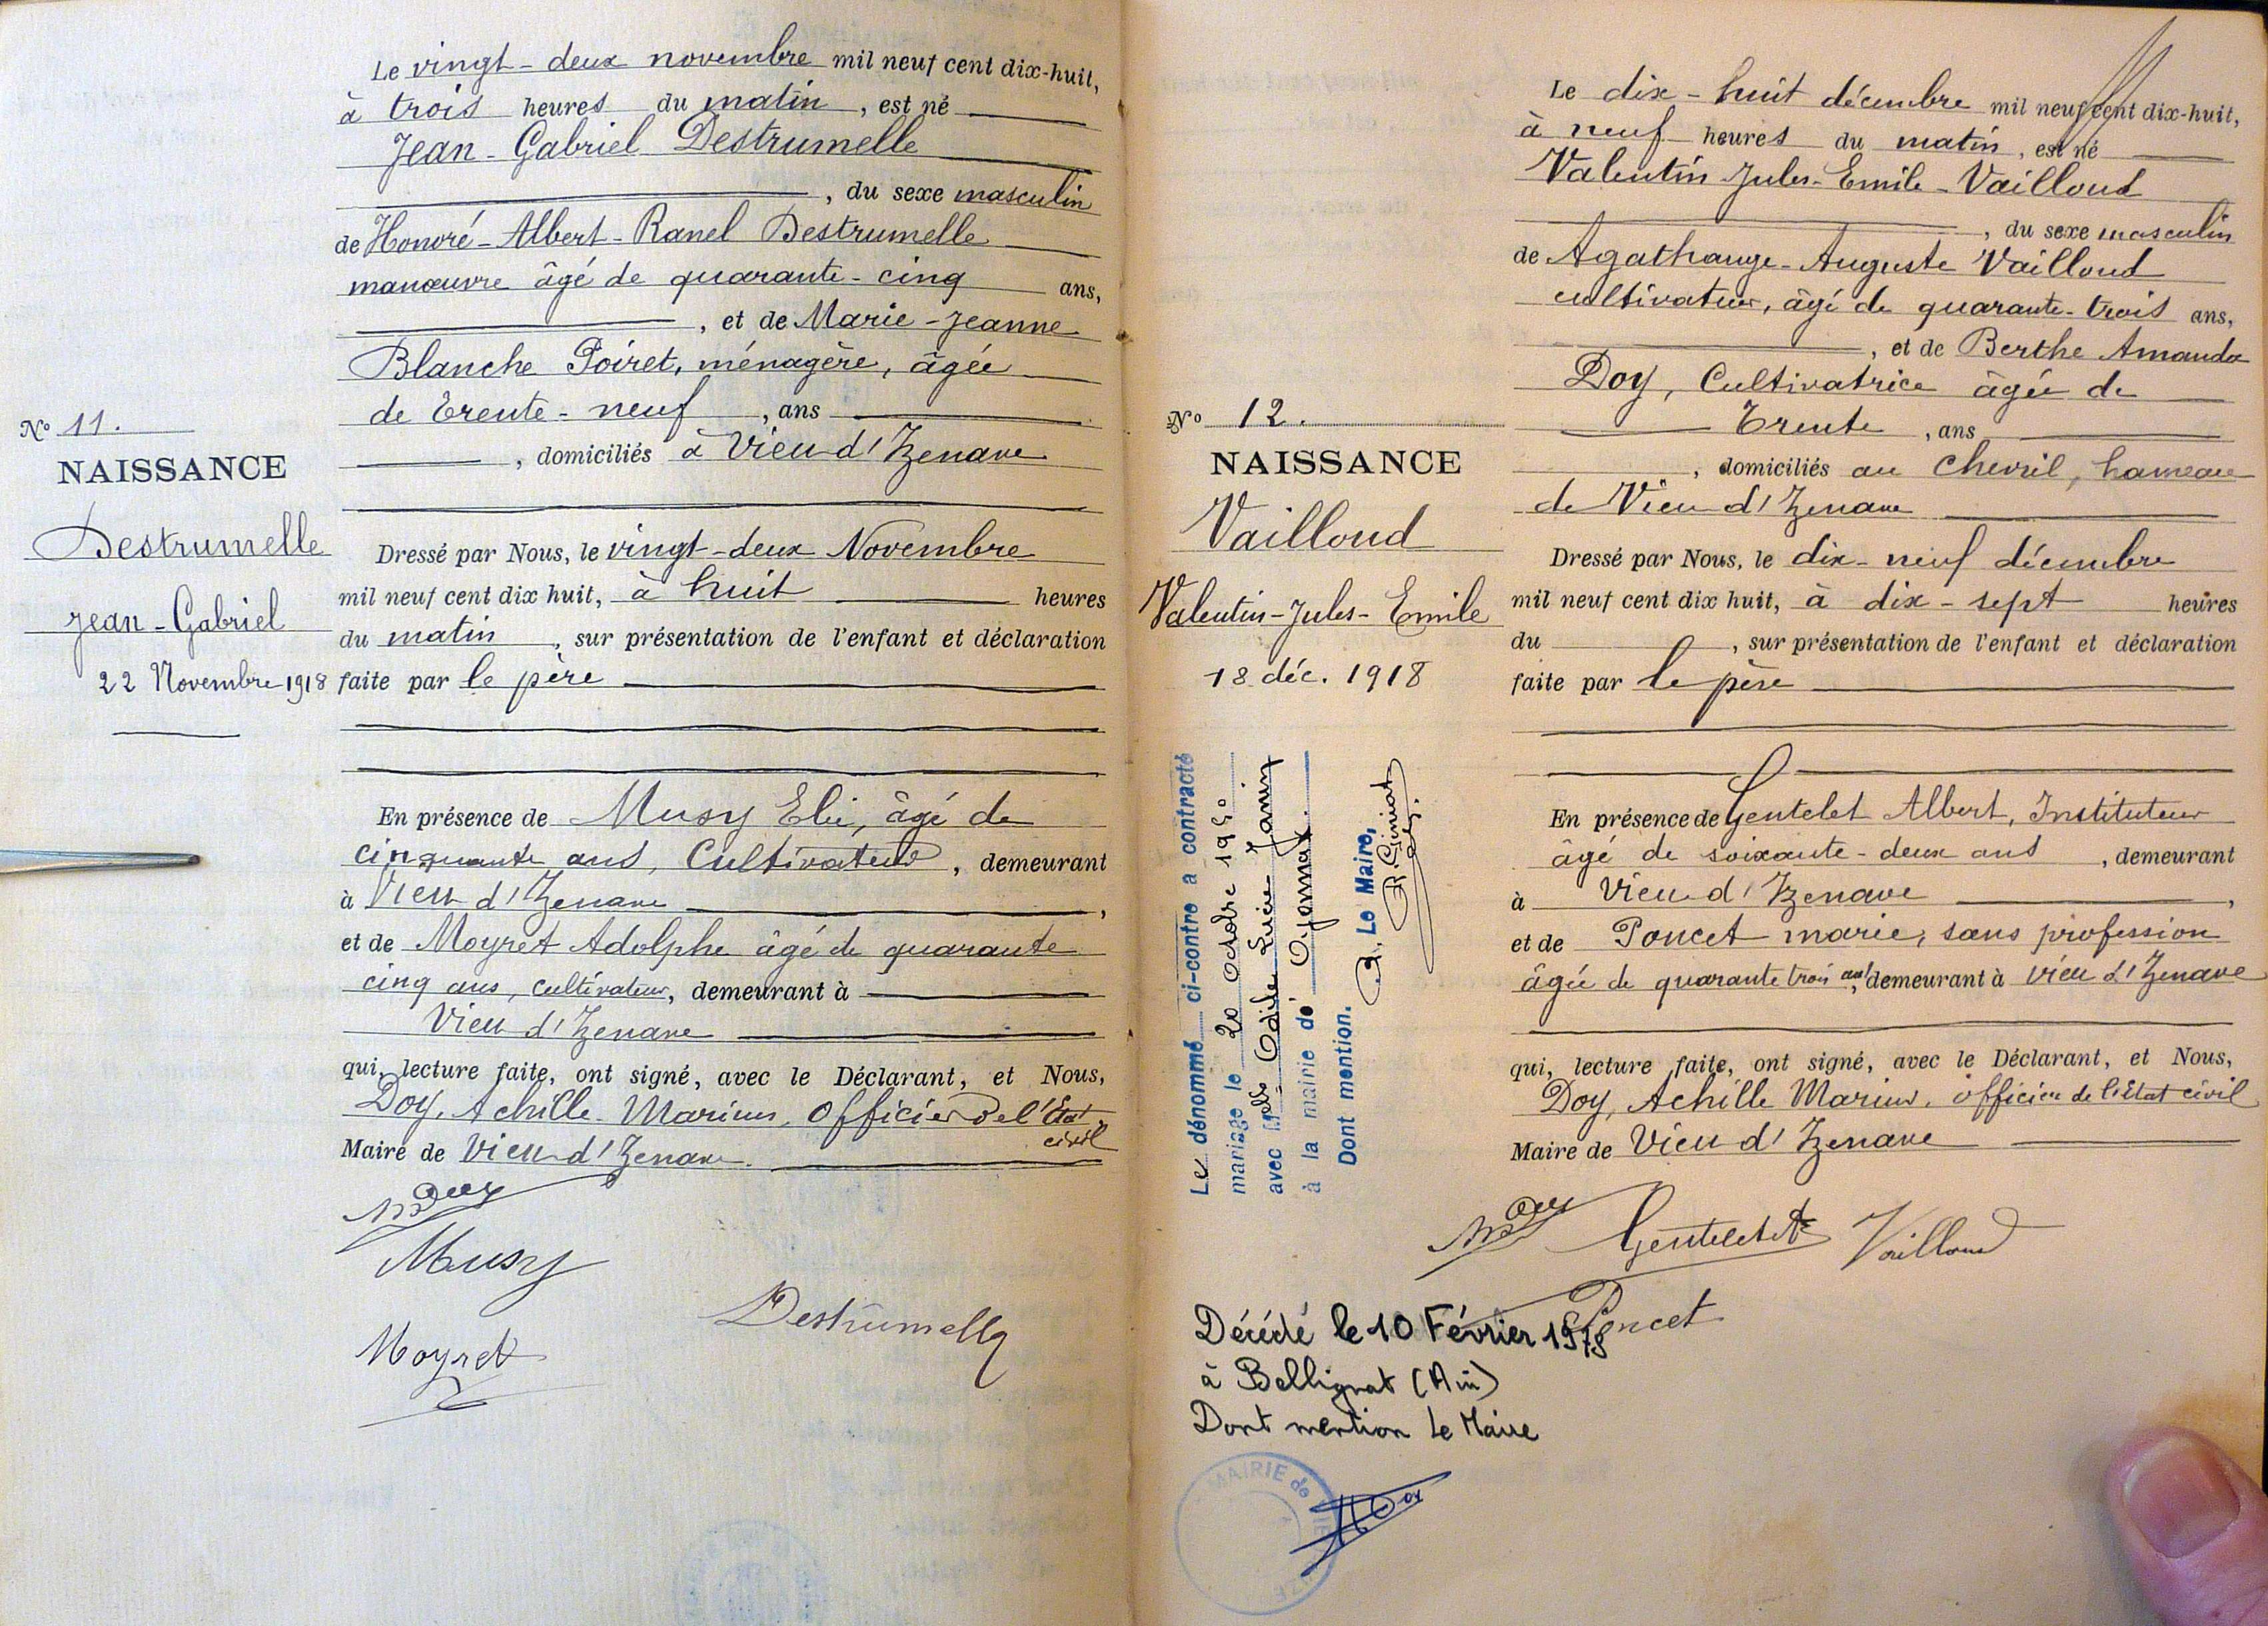 Le vingt-deux novembre mil neuf cent dix-huit,
à trois heures du matin, est né
Jean-Gabriel Destrumelle
, du sexe masculin
de Honoré-Albert-Ranel Destrumelle
manœuvre âgé de quarante-cinq ans,
, et de Marie-Jeanne
Blanche Poiret, ménagère, âgée
de trente-neuf, ans
, domiciliés à Vieu d'Izenave
No 11.
NAISSANCE
Destrumelle
Jean-Gabriel
22 Novembre 1918
Dressé par Nous, le vingt-deux Novembre
mil neuf cent dix huit, à huit heures
du matin, sur présentation de l'enfant et déclaration
faite par le père
En présence de Musy Elie, âgé de
cinquante ans, Cultivateur, demeurant
à Vieu d'Izenave,
et de Moyret Adolphe âgé de quarante
cinq ans, cultivateur, demeurant à
Vieu d'Izenave
qui, lecture faite, ont signé, avec le Déclarant, et Nous,
Doy, Achille Marius, Officier de l'Etat
civil
Maire de Vieu d'Izenave.
Musy
Destrumelle
Moyret
Le dix-huit décembre mil neuf cent dix-huit,
à neuf heures du matin, est né
Valentin Jules-Emile-Vailloud
, du sexe masculin
de Agathange-Auguste Vailloud
cultivateur, âgé de quarante-trois ans,
, et de Berthe Amanda
Doy, Cultivatrice âgée de
Trente, ans
, domiciliés au Chevril, hameau
de Vieu d'Izenave
No 12.
NAISSANCE
Vailloud
Valentin-Jules-Emile
18 déc. 1918
Dressé par Nous, le dix-neuf décembre
mil neuf cent dix huit, à dix-sept heures
du , sur présentation de l'enfant et déclaration
faite par le père
En présence de Gentelet Albert, Instituteur
âgé de soixante-deux ans, demeurant
à Vieu d'Izenave,
et de Poncet marie, sans profession
âgée de quarante trois ans, demeurant à Vieu d'Izenave
qui, lecture faite, ont signé, avec le Déclarant, et Nous,
Doy, Achille Marius, officier de l'état civil
Maire de Vieu d'Izenave
Le dénommé ci-contre a contracté
mariage le 20 octobre 1950
avec Melle Odile Lucie Janin
à la mairie de Oyonnax.
Dont mention.
Le Maire,
Gentelet A
Vailloud
Poncet
Décédé le 10 Février 1978
à Bellignat (Ain)
Dont mention Le Maire
MAIRIE de